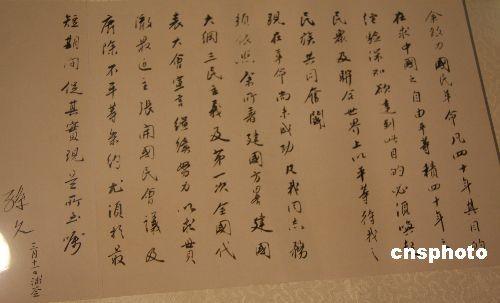 余致力國民革命凡四十年其目的
在求中國之自由平等積四十年之
經驗深知欲達到此目的必須喚起
民衆及聯合世界上以平等待我之
民族共同奮鬪
現在革命尚未成功凡我同志務
須依照余所著建國方畧建國
大綱三民主義及第一次全國代
表大會宣言繼續努力以求貫
徹最近主張開國民會議及
廢除不平等條約尤須於最
短期間促其實現是所至囑
孫文
三月十一日補簽
cnsphoto